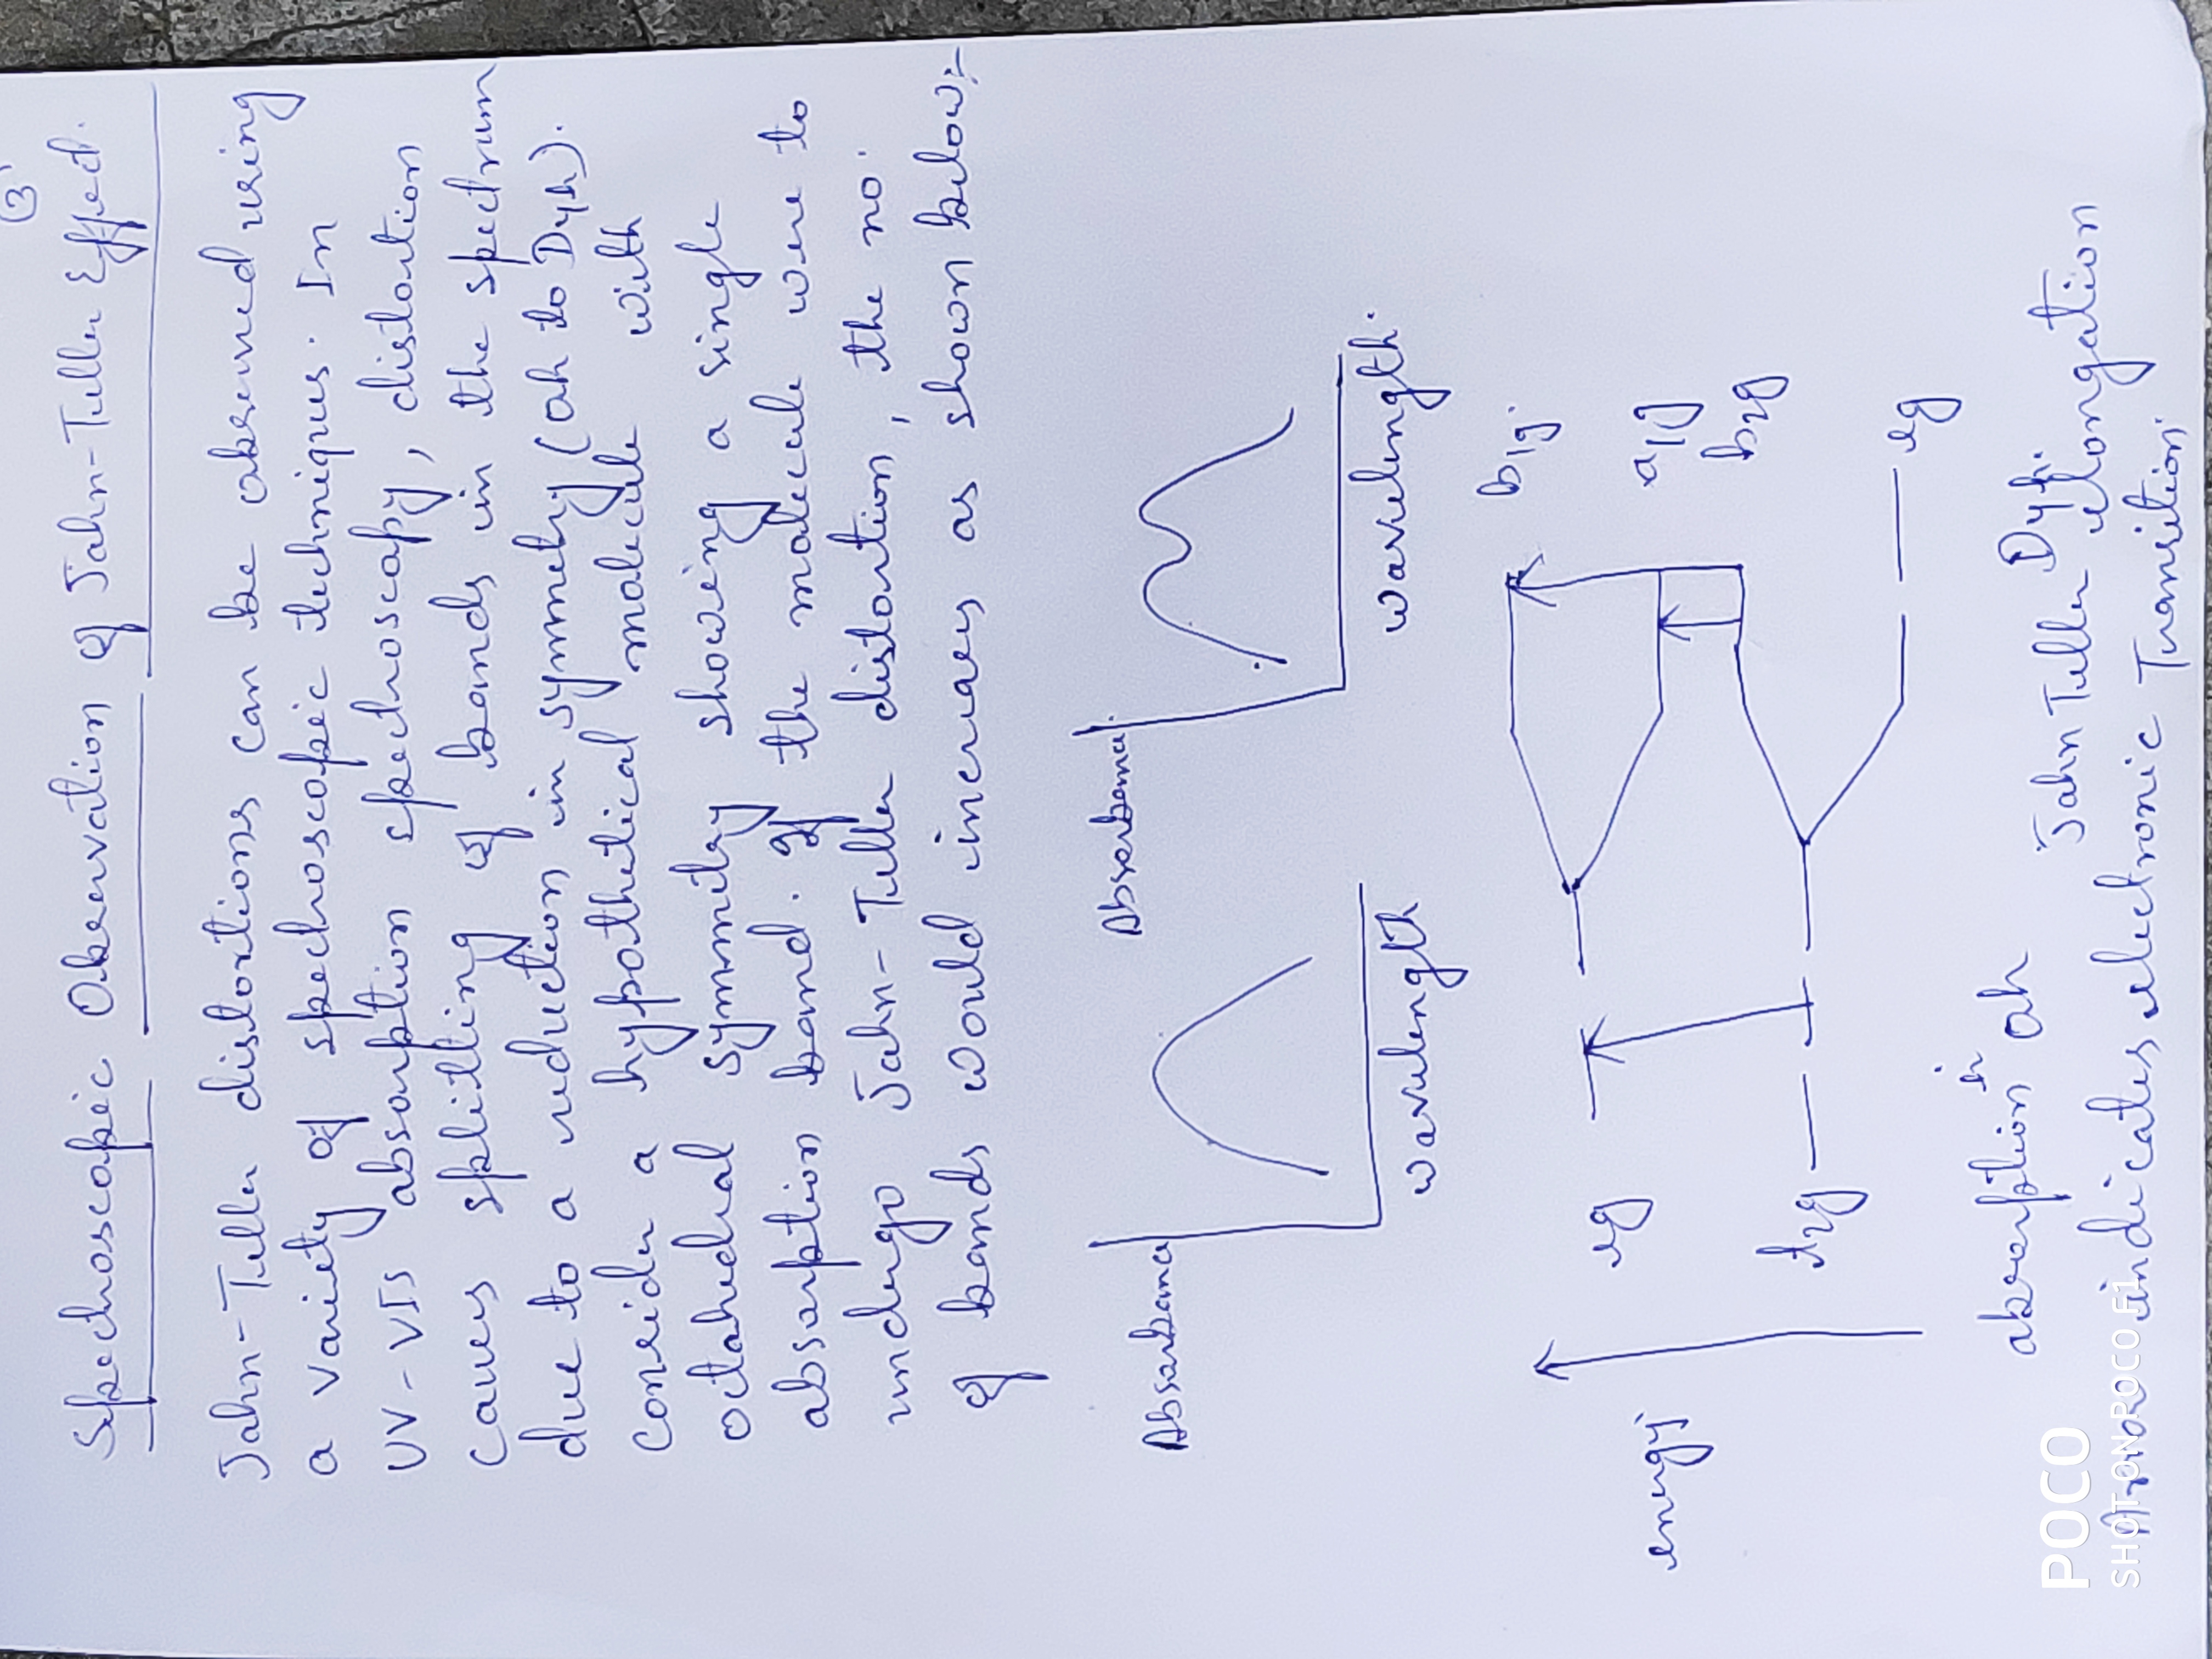 (3)
Spectroscopic Observation of Jahn-Teller Effect.
Jahn-Teller distortions can be observed using
a variety of spectroscopic techniques. In
UV-VIS absorption spectroscopy, distortion
causes splitting of bands in the spectrum
due to a reduction in symmetry (Oh to D4h).
Consider a hypothetical molecule with
octahedral symmetry showing a single
absorption band. If the molecule were to
undergo Jahn-Teller distortion, the no.
of bands would increases as shown below:-
Absorbance
wavelength
Absorbance
wavelength.
energy
eg
t2g
b1g.
a1g
b2g
eg
absorption in Oh
Jahn Teller D4h.
elongation
Arrow indicates electronic Transition.
POCO
SHOT ON POCO F1